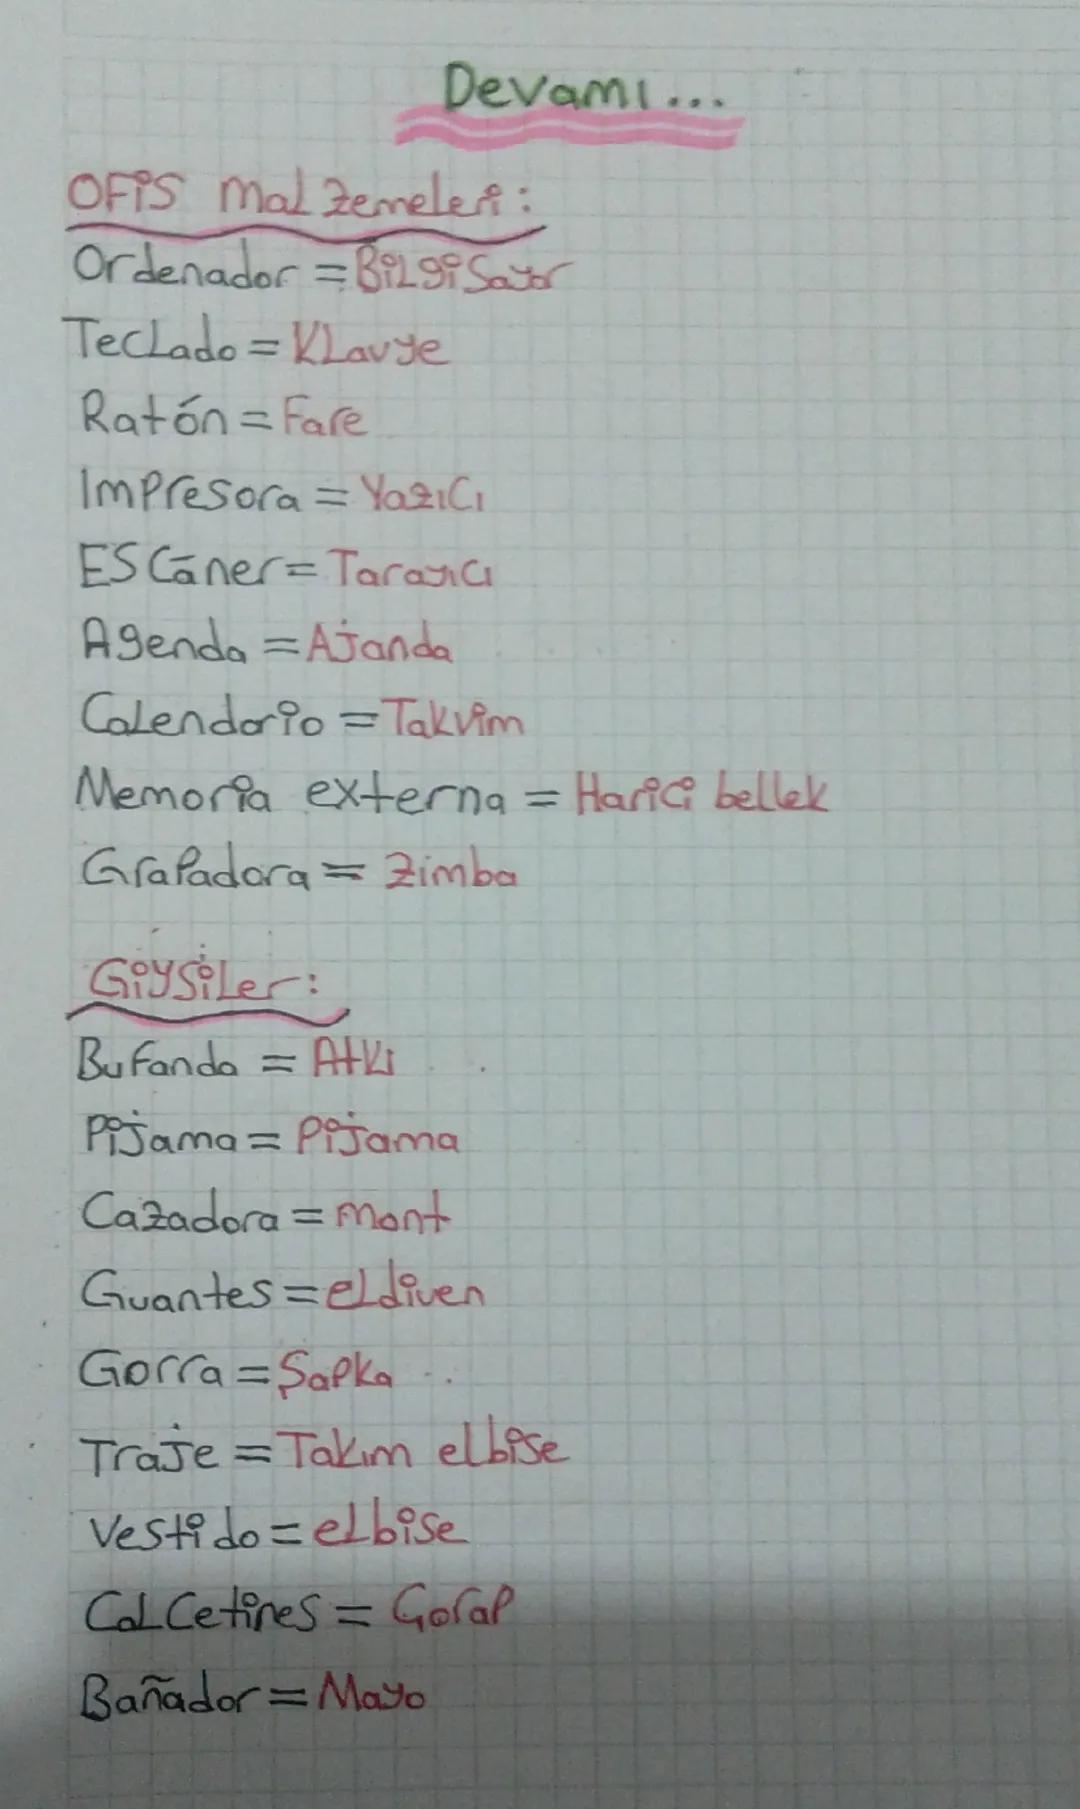 Devamı...
OFİS Malzemeleri:
Ordenador = BİLGİSayar
TecLado = KLavye
Ratón = Fare
Impresora = Yazıcı
EScáner = Tarayıcı
Agenda = Ajanda
Calendario = Takvim
Memoria externa = Harici bellek
Grapadora = Zimba
GiysiLer:
Bufanda = Atkı
Pijama = Pijama
Cazadora = mont
Guantes = eldiven
Gorra = Şapka
Traje = Takım elbise
Vestido = elbise
Calcetines = Çorap
Bañador = Mayo